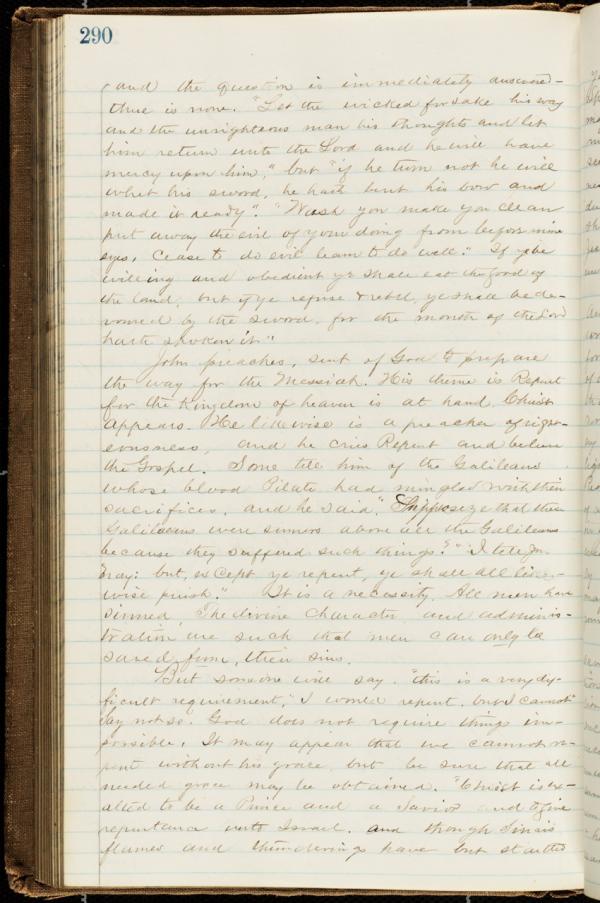 290
and the question is immediately answered-
there is none. "Let the wicked forsake his way
and the unrighteous man his thoughts and let
him return unto the Lord and he will have
mercy upon him," but "if he turn not he will
whet his sword, he hath bent his bow and
made it ready". "Wash you make you clean
put away the evil of your doing from before mine
eyes, Cease to do evil learn to do well." If ye be
willing and obedient ye shall eat the good of
the land; but if ye refuse & rebel, ye shall be de-
voured by the sword, for the mouth of the Lord
hath spoken it."
John preaches, sent of God to prepare
the way for the Messiah. His theme is Repent
for the Kingdom of heaven is at hand. Christ
appears. He likewise is a preacher of right-
eousness, and he cries Repent and believe
the Gospel. Some tell him of the Galileans
whose blood Pilate had mingled with their
sacrifices, and he said, "Suppose ye that these
Galileans were sinners above all the Galileans
because they suffered such things?" "I tell you
nay: but, except ye repent, ye shall all like-
wise perish." It is a necessity. All men have
sinned. The divine character and adminis-
tration are such that men can only be
saved from their sins.
But someone will say "this is a very dif-
ficult requirement," I would repent, but I cannot"
Say not so. God does not require things im-
possible. It may appear that we cannot re-
pent without his grace but be sure that all
needed grace may be obtained. "Christ is ex-
alted to be a Prince and a Savior and to give
repentance unto Israel. and though Sinai's
flames and thunderings have but startled